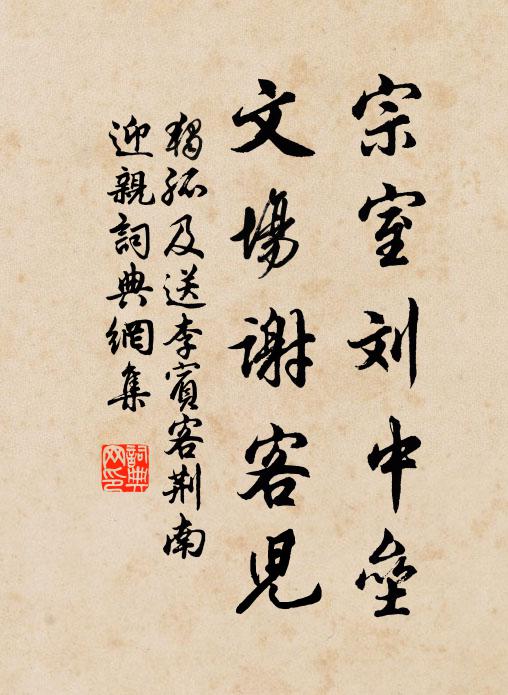 宗室刘中垒
文場謝客兒
獨孤及送李賓客荆南
迎親詞典網集
詞典
网印